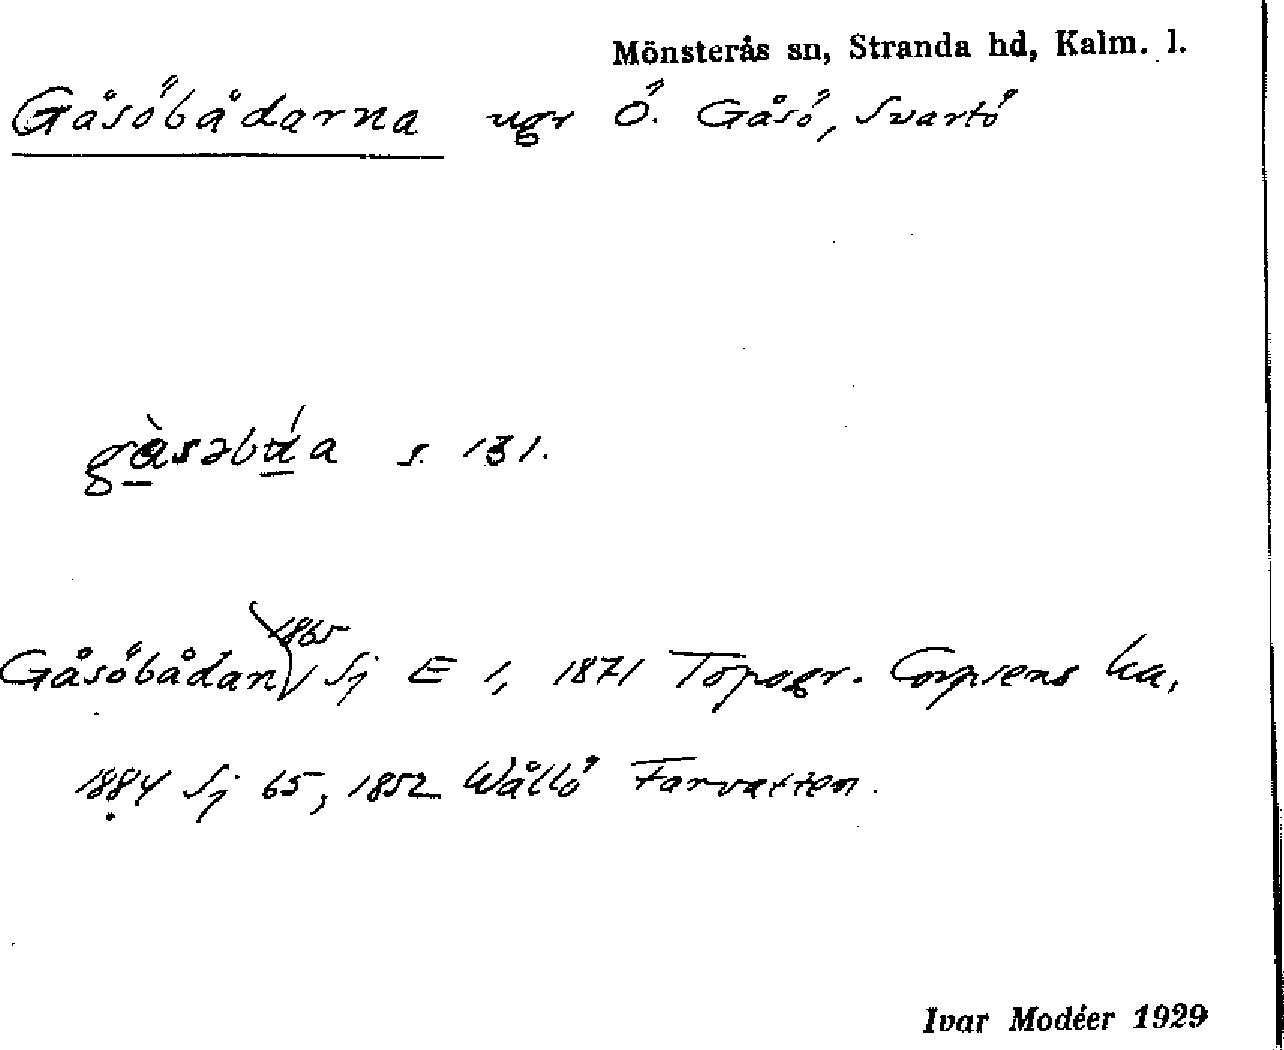 Mönsterås sn, Stranda hd, Kalm. l.
Gåsöbådarna ugr Ö. Gåsö, Svartö
gàsəbá̱a s. 131.
1865
Gåsöbådan, Sj E 1, 1871 Topogr. Corpsens ka,
1884 Sj 65, 1852 Wållö Farvatten.
Ivar Modéer 1929